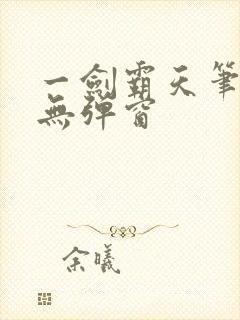 一劍霸天筆
無彈窗
余曦